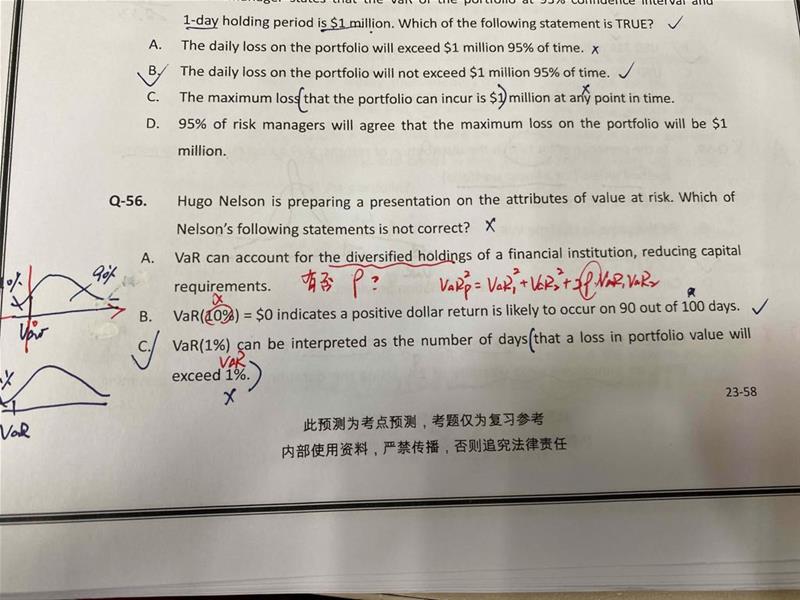 manager states that the VaR of the portfolio at 95% confidence interval and
1-day holding period is $1 million. Which of the following statement is TRUE? ✓
A. The daily loss on the portfolio will exceed $1 million 95% of time. x
B. The daily loss on the portfolio will not exceed $1 million 95% of time. ✓
C. The maximum loss (that the portfolio can incur is $1) million at any point in time. x
D. 95% of risk managers will agree that the maximum loss on the portfolio will be $1
million.
Q-56. Hugo Nelson is preparing a presentation on the attributes of value at risk. Which of
Nelson's following statements is not correct? x
A. VaR can account for the diversified holdings of a financial institution, reducing capital
requirements. 有否 ρ? VaRp² = VaR₁² + VaR₂² + 2ρ VaR₁ VaR₂
90%
α
B. VaR(10%) = $0 indicates a positive dollar return is likely to occur on 90 out of 100 days. ✓
C. VaR(1%) can be interpreted as the number of days (that a loss in portfolio value will
VaR
exceed 1%.)
x
VaR
23-58
此预测为考点预测，考题仅为复习参考
内部使用资料，严禁传播，否则追究法律责任